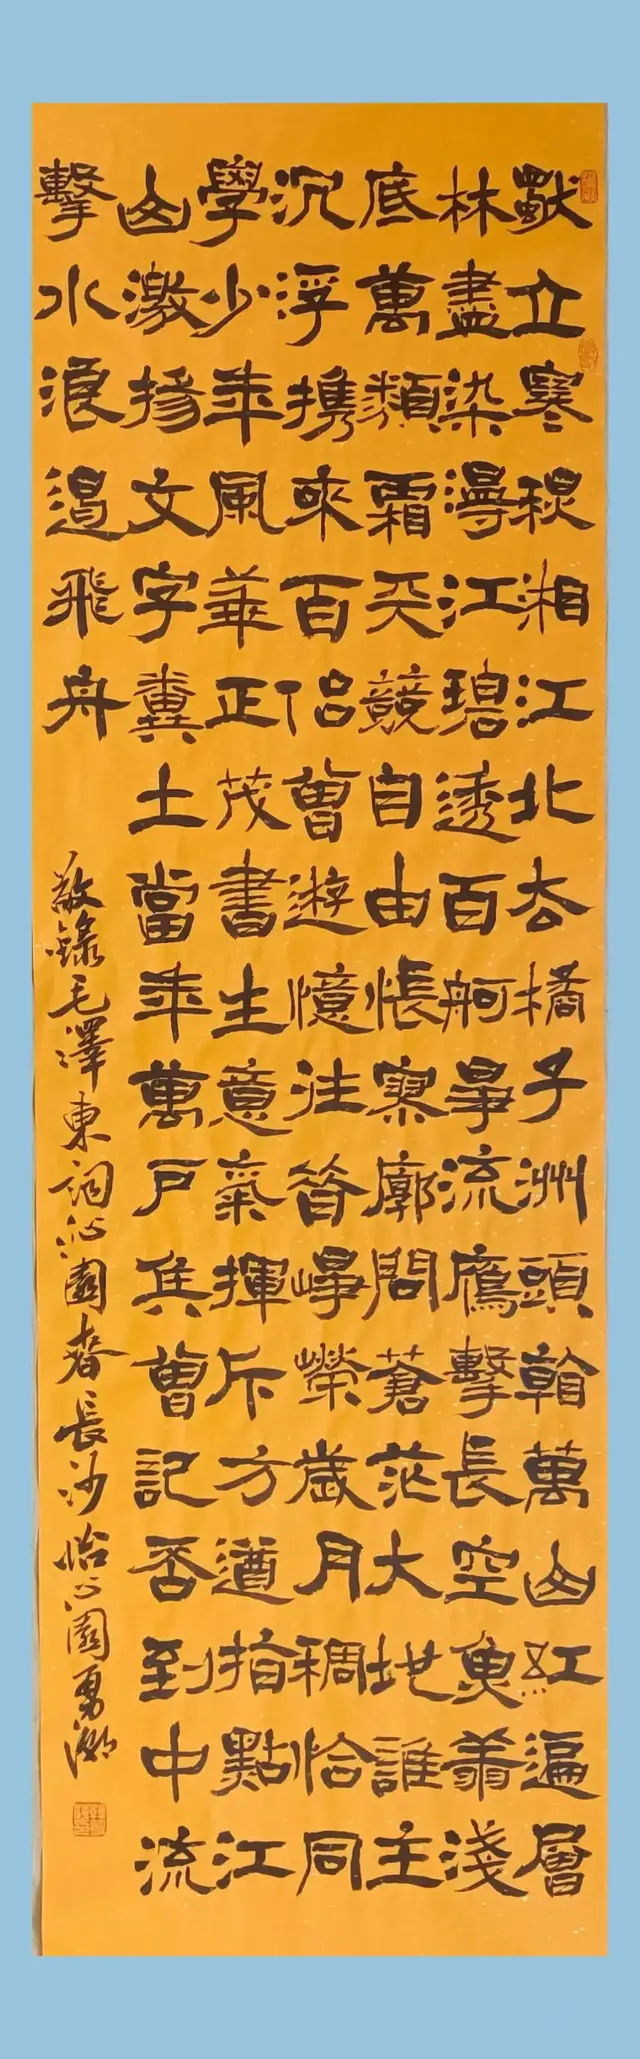 獨立寒秋湘江北去橘子洲頭看萬山紅遍層
林盡染漫江碧透百舸爭流鷹擊長空魚翔淺
底萬類霜天競自由悵寥廓問蒼茫大地誰主
沉浮携來百侶曾遊憶往昔崢嶸歲月稠恰同
學少年風華正茂書生意氣揮斥方遒指點江
山激揚文字糞土當年萬戶侯曾記否到中流
擊水浪遏飛舟
敬錄毛澤東詞沁園春長沙怡心園勇